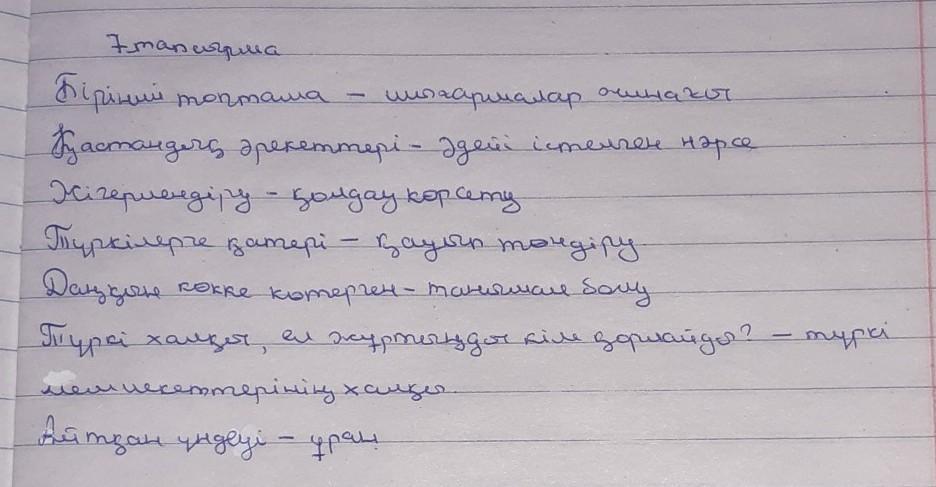 7 тапсырма
Бірінші топтама - шығармалар жинағы
Қастандық әрекеттері - Әдейі істелген нәрсе
Жігерлендіру - қолдау көрсету
Түркілерге қатері - қауып төндіру
Даңқын көкке көтерген - танымал болу
Түркі халқы, ел жұртыңды кім қорлайды? - түркі
мемлекеттерінің халқы.
Айтқан үндеуі - ұран